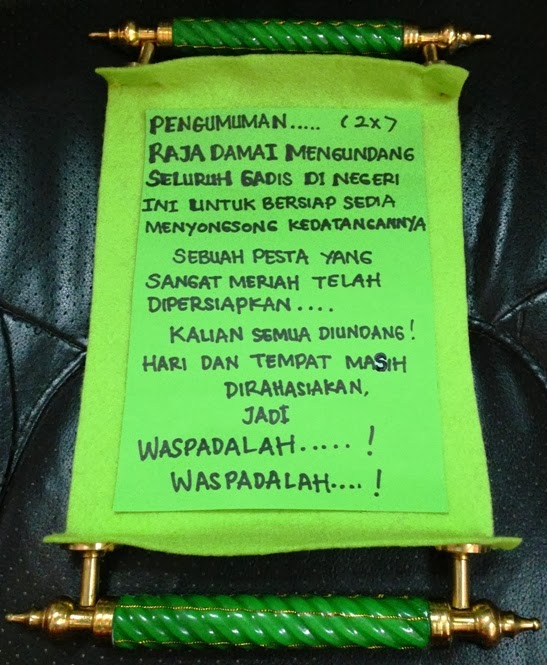 PENGUMUMAN..... (2x)
RAJA DAMAI MENGUNDANG
SELURUH GADIS DI NEGERI
INI UNTUK BERSIAP SEDIA
MENYONGSONG KEDATANGANNYA
SEBUAH PESTA YANG
SANGAT MERIAH TELAH
DIPERSIAPKAN....
KALIAN SEMUA DIUNDANG!
HARI DAN TEMPAT MASIH
DIRAHASIAKAN,
JADI
WASPADALAH.....!
WASPADALAH....!